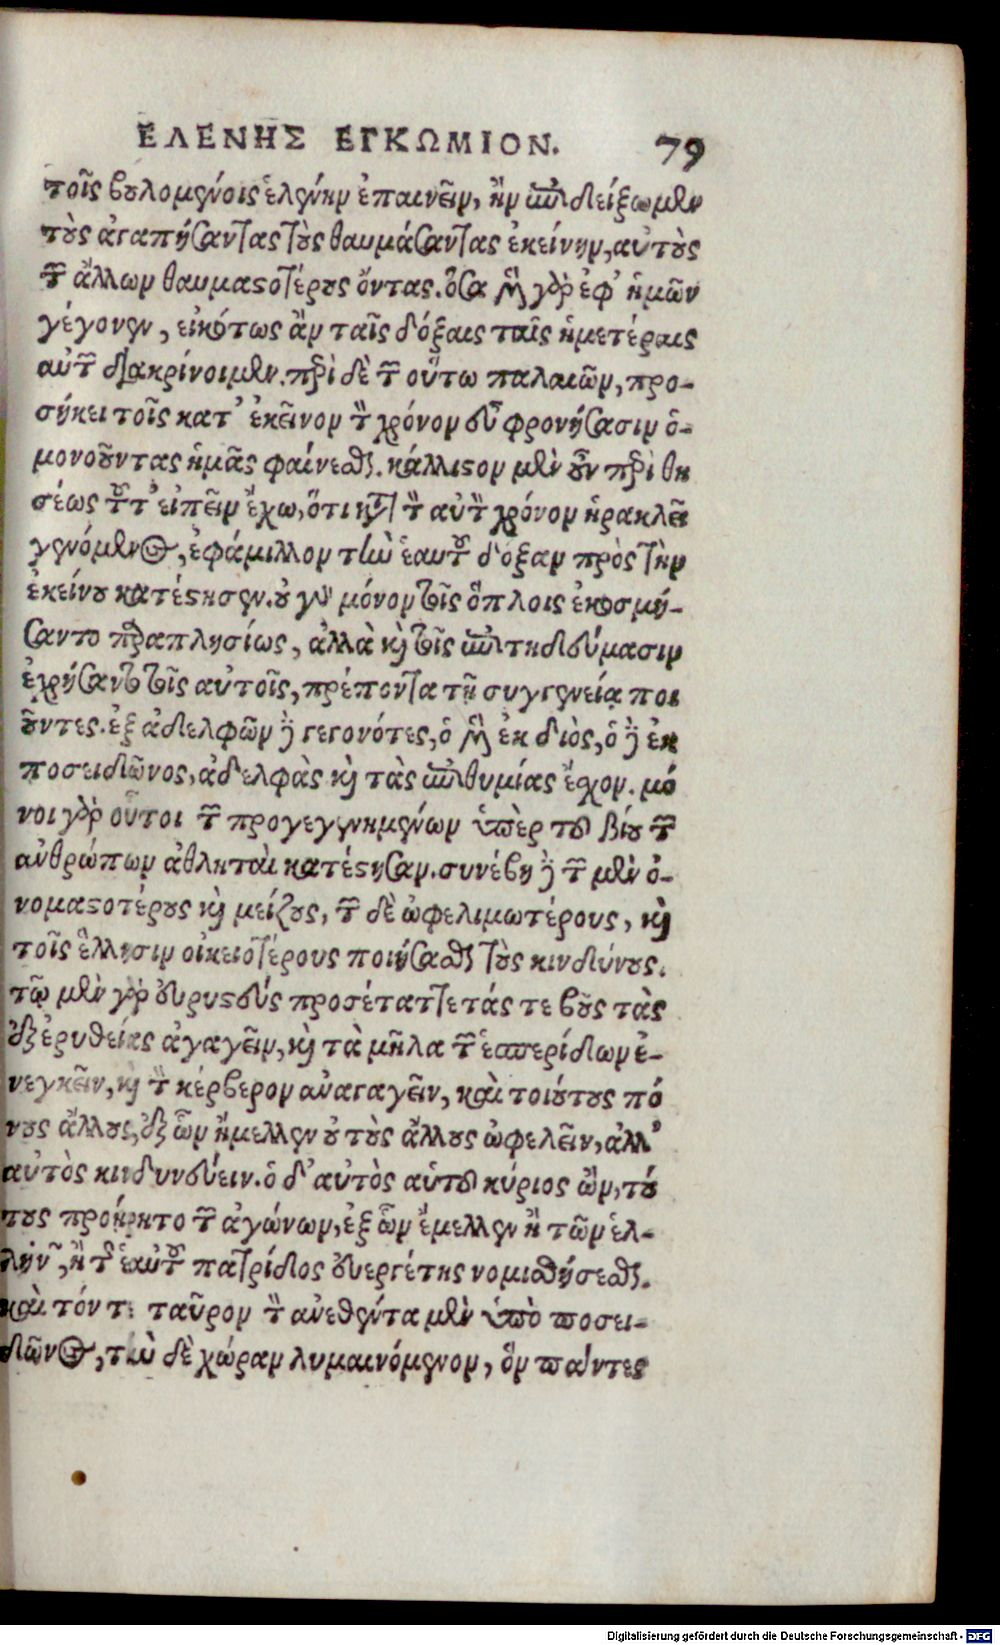 ΕΛΕΝΗΣ ΕΓΚΩΜΙΟΝ. 79
τοῖς βουλομένοις ἑλένην ἐπαινεῖν, ἢν ἐπιδείξωμεν
τοὺς ἀγαπήσαντας τοὺς θαυμάσαντας ἐκείνην, αὐτοὺς
τῶν ἄλλων θαυμαστοτέρους ὄντας. ὅσα μὲν γὰρ ἐφ' ἡμῶν
γέγονεν, εἰκότως ἂν ταῖς δόξαις ταῖς ἡμετέραις
αὐτῶν διακρίνοιμεν. περὶ δὲ τῶν οὕτω παλαιῶν, προ-
σήκει τοῖς κατ' ἐκεῖνον τὸν χρόνον εὖ φρονήσασιν ὁ-
μονοῦντας ἡμᾶς φαίνεσθαι. κάλλιστον μὲν οὖν περὶ θη
σέως τοῦτ' εἰπεῖν ἔχω, ὅτι κατὰ τὸν αὐτὸν χρόνον ἡρακλεῖ
γενόμενος, ἐφάμιλλον τὴν ἑαυτοῦ δόξαν πρὸς τὴν
ἐκείνου κατέστησεν. οὐ γὰρ μόνον τοῖς ὅπλοις ἐκοσμή-
σαντο παραπλησίως, ἀλλὰ καὶ τοῖς ἐπιτηδεύμασιν
ἐχρήσαντο τοῖς αὐτοῖς, πρέποντα τῇ συγγενείᾳ ποι
οῦντες. ἐξ ἀδελφῶν γὰρ γεγονότες, ὁ μὲν ἐκ διὸς, ὁ δὲ ἐκ
ποσειδῶνος, ἀδελφὰς καὶ τὰς ἐπιθυμίας ἔσχον. μό
νοι γὰρ οὗτοι τῶν προγεγενημένων ὑπὲρ τοῦ βίου τῶν
ἀνθρώπων ἀθληταὶ κατέστησαν. συνέβη δὲ τὸν μὲν ὀ-
νομαστοτέρους καὶ μείζους, τὸν δὲ ὠφελιμωτέρους, καὶ
τοῖς ἕλλησιν οἰκειοτέρους ποιήσασθαι τοὺς κινδύνους.
τῷ μὲν γὰρ εὐρυστεὺς προσέταττε τάς τε βοῦς τὰς
ἐξ ἐρυθείας ἀγαγεῖν, καὶ τὰ μῆλα τῶν ἑσπερίδων ἐ-
νεγκεῖν, καὶ τὸν κέρβερον ἀναγαγεῖν, καὶ τοιούτους πό
νους ἄλλους, ἐξ ὧν ἤμελλεν οὐ τοὺς ἄλλους ὠφελεῖν, ἀλλ'
αὐτὸς κινδυνεύειν. ὁ δ' αὐτὸς αὑτοῦ κύριος ὢν, τού
τους προῄρητο τῶν ἀγώνων, ἐξ ὧν ἔμελλεν ἢ τῶν ἑλ-
λήνων, ἢ τῆς ἑαυτοῦ πατρίδος εὐεργέτης νομισθήσεσθαι.
καὶ τόν τε ταῦρον τὸν ἀνεθέντα μὲν ὑπὸ ποσει-
δῶνος, τὴν δὲ χώραν λυμαινόμενον, ὃν πάντες
Digitalisierung gefördert durch die Deutsche Forschungsgemeinschaft - DFG